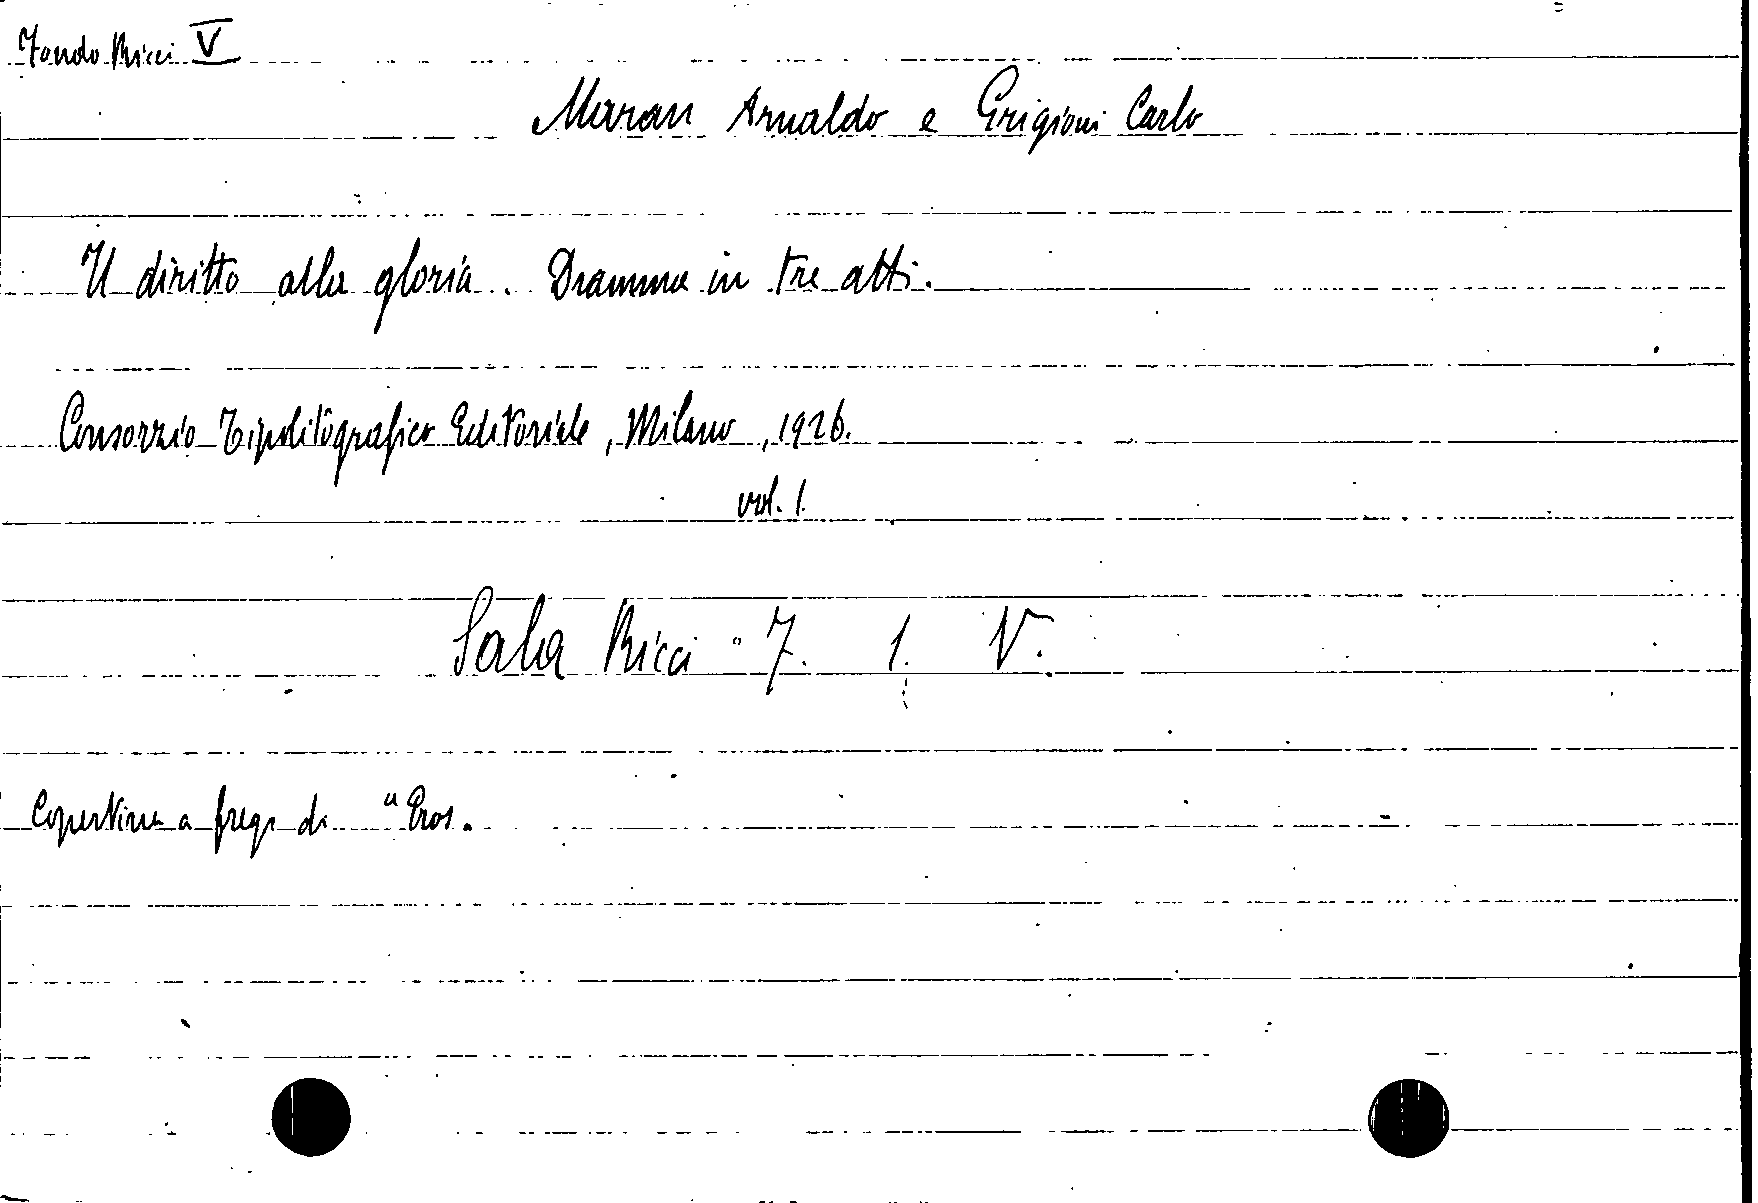 Fondo Ricci V
Maran Arnaldo e Grigioni Carlo
Il diritto alla gloria. Dramma in tre atti.
Consorzio Tipolitografico Editoriale, Milano, 1926.
vol. 1
Sala Ricci - 7. 1. V.
Copertina a fregi di "Eros.